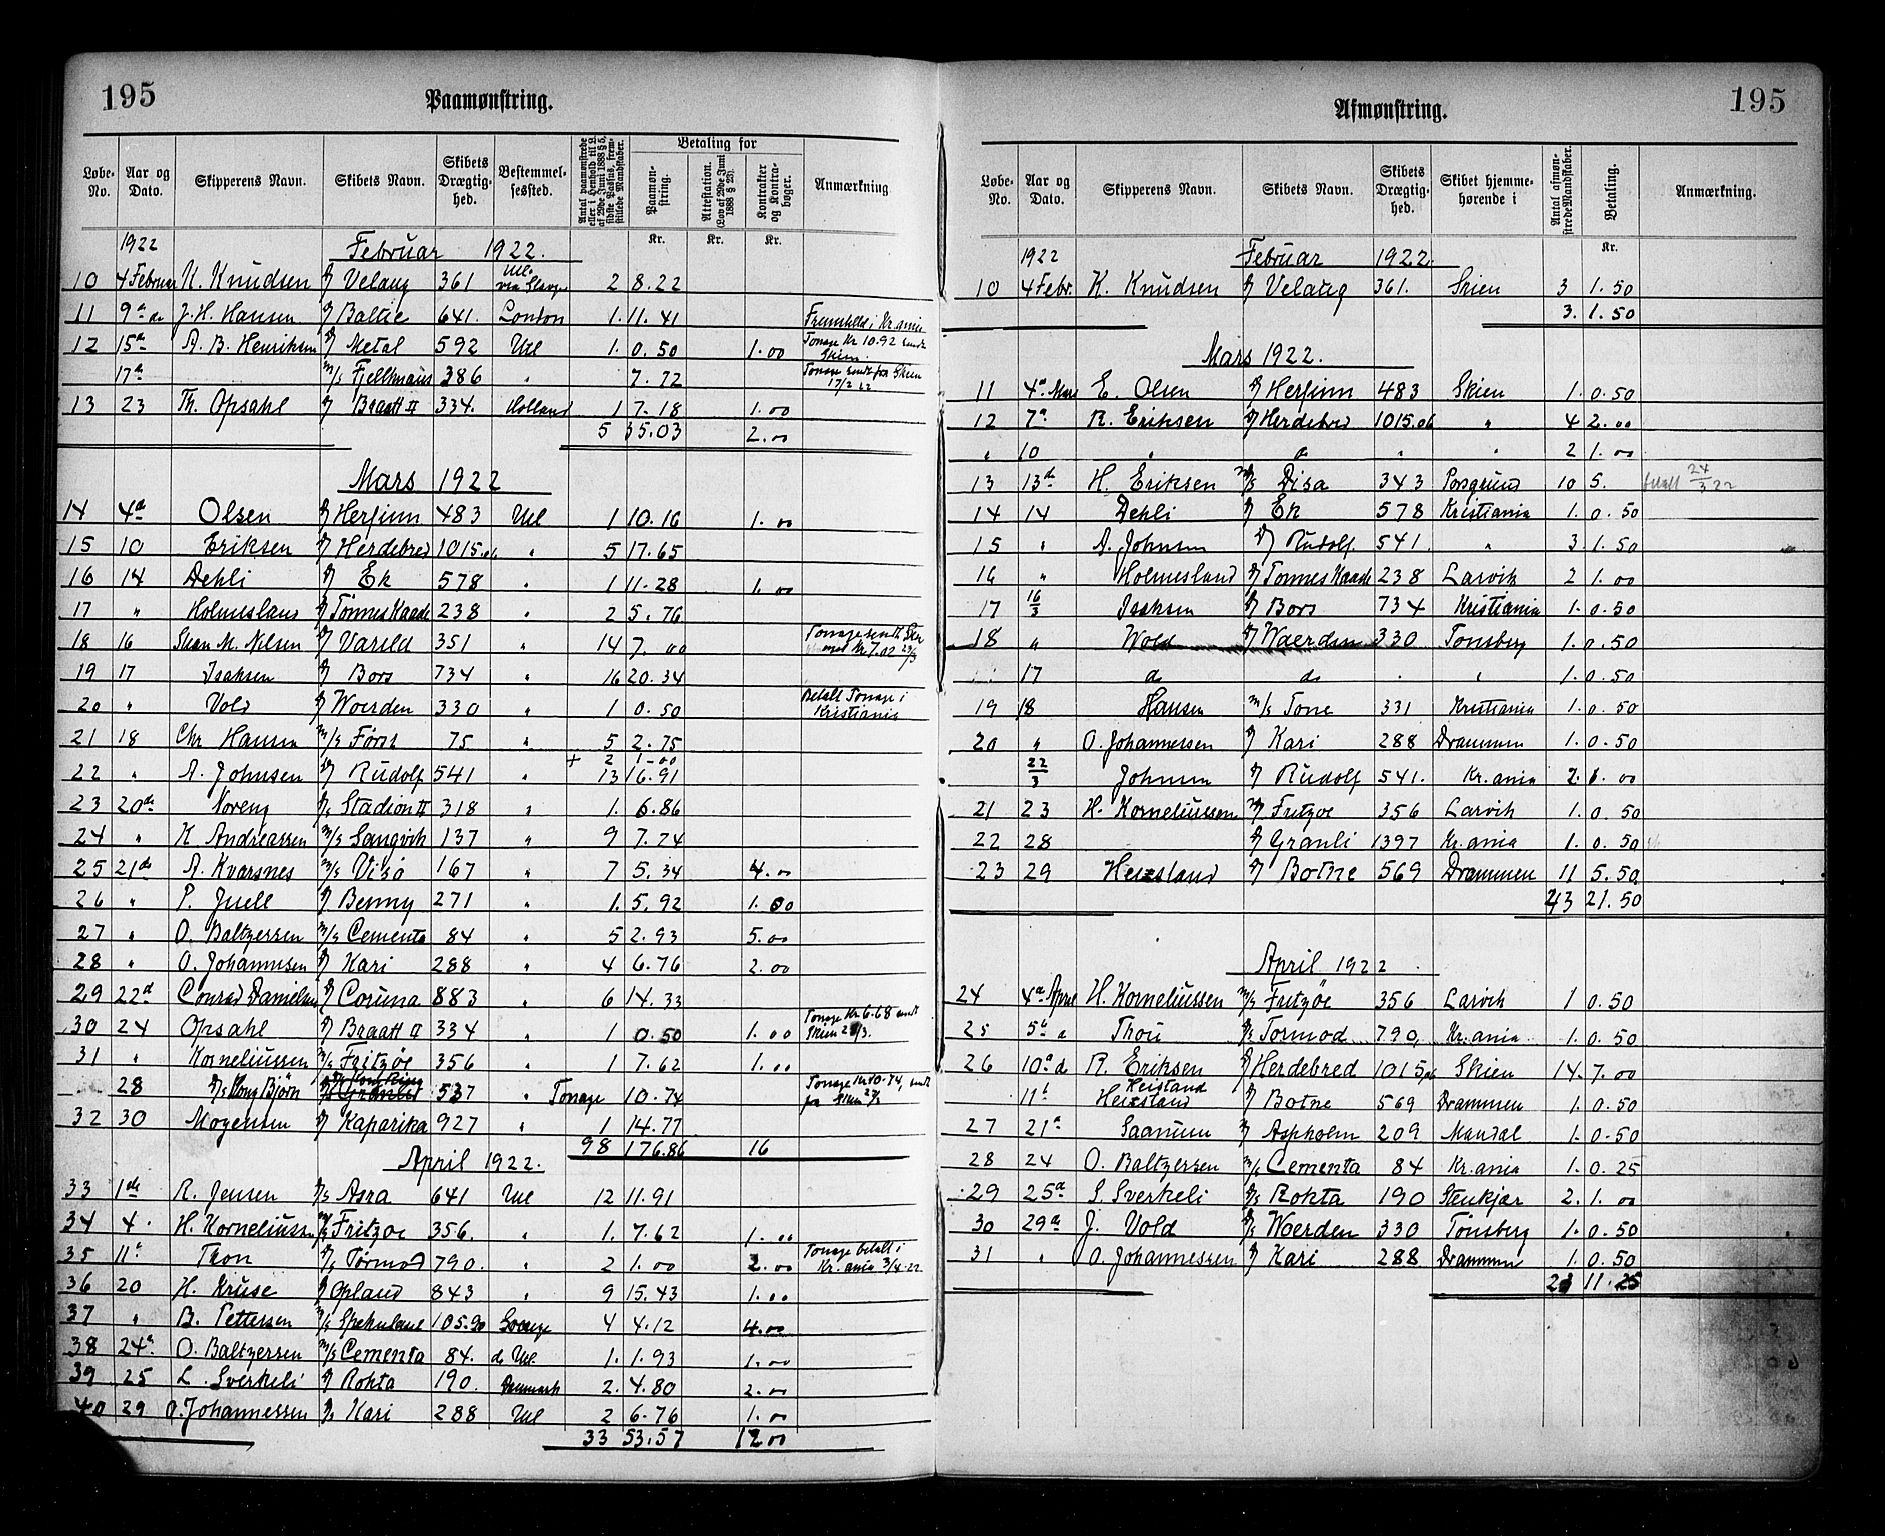 195
Paamønstring.
Løbe-No. Aar og Dato. Skipperens Navn. Skibets Navn. Skibets Drægtighed. Bestemmelsessted. Antal paamønstrede eller i Henhold til L. af 29de Juni 1888 § 5, sidste Passus, fremstillede Mandskaber. Betaling for Paamønstring. Attestation. (Lov af 29de Juni 1888 § 25). Kontrakter og Kontrabøger. Anmærkning
Kr. Kr. Kr.
1922 Februar 1922.
10 4 Februar K. Knudsen Velaug 361 Utl. via 2 8.22
11 9de J. H. Hansen Baltic 641. London 1. 11.41 i Kr.ania
12 15de A. B. Henriksen Metal 592 Utl 1. 0.50 1.00 Tonage Kr 10.92 sendt Skien.
17de M/s Fjellknaus 386 " 7.72 Tonage sendt fra Skien 17/2 22
13 23 Th. Opsahl Braatt II 334. Holland 1 7.18 1.00
5 35.03 2.00
Mars 1922
14 4de Olsen Herfinn 483 Utl 1 10.16 1.00
15 10 Eriksen Herdebred 1015.06 " 5 17.65
16 14 Dehli Ek 578 " 1 11.28 1.00
17 " Holmesland Tønnes Kaade 238 " 2 5.76
18 16 M. Nilsen Varild 351 " 14 7.00 Tonage sendt Kr 7.02
19 17 Isaksen Bors 734 " 16 20.34
20 " Vold Woerden 330 " 1 0.50 Betalt Tonage i Kristiania
21 18 Chr Hansen M/s Først 75 " 5 2.75
+ 2 1-00
22 " A. Johnsen Rudolf 541 " 13 16.91
23 20de Noreng Stadion II 318 " 1. 6.86
24 " K Andreassen M/s Sangvik 137 " 9 7.74
25 21de A. Kvarsnes M/s Visø 167 " 7 5.34 4.00
26 " P. Juell Benny 271 1. 5.92 1.00
27 " O. Baltzersen M/s Cementa 84 " 5 2.93 5.00
28 " O. Johannesen Kari 288 " 4 6.76 2.00
29 22d Conrad Danielsen Coruna 883 " 6 14.33
30 24 Opsahl Braatt II 334 " 1 0.50 1.00 Tonage Kr 6.68 sendt Skien
31 " Korneliussen M/s Fritzøe 356 " 1 7.62 1.00
28 Kong Bjørn 537 " Tonage 10.74 Tonage Kr 10.74, sendt fra Skien
32 30 Mogensen Kaparika 927 " 1 14.77
98 176.86 16
April 1922.
33 1de R. Jensen Asra 641 Utl 12 11.91
34 4. H. Korneliussen M/s Fritzoe 356. " 1. 7.62 1.00
35 11te Thon Tormod 790. " 2 1.00 2.00 Tonage betalt i Kr.ania 3/4-22
36 20 H. Kruse Opland 843 " 9 15.43 1.00
37 " B. Pettersen M/s 105.90 4 4.12 4.00
38 24de O. Baltzersen M/s Cementa 84. Utl. 1. 1.93 1.00
39 25 L. Sverkeli Rokta 190. Danmark 2. 4.80 2.00
40 29 O. Johannessen Kari 288 Utl 2 6.76 1.00
33 53.57 12.00
195
Afmønstring.
Løbe-No. Aar og Dato. Skipperens Navn. Skibets Navn. Skibets Drægtighed. Skibet hjemmehørende i Antal afmønstrede Mandskaber. Betaling. Anmærkning.
Kr.
1922 Februar 1922.
10 4 Febr. K. Knudsen Velaug 361. Skien 3 1.50
3. 1.50
Mars 1922.
11 4de Mars E. Olsen Herfinn 483 Skien 1. 0.50
12 7de R. Eriksen Herdebred 1015.06 " 4 2.00
" 10 " " " " 2 1.00
13 13de H. Eriksen M/s Disa 343 Porsgrund 10 5. betalt 24/3 22
14 14 Dehli Ek 578 Kristiania 1. 0.50
15 " A. Johnsen Rudolf. 541. " 3 1.50
16 " Holmesland Tønnes Kaade 238 Larvik 2 1.00
17 16/3 Isaksen Bors 734 Kristiania 1. 0.50
18 " Wold Woerden 330 Tønsberg 1. 0.50
17 do do " " 1. 0.50
19 18 Hansen M/s Tone 331 Kristiania 1. 0.50
20 " O. Johannessen Kari 288 Drammen 1. 0.50
22/3 Johnsen Rudolf 541. Kr.ania 2. 1.00
21 23 H. Korneliussen Fritzoe 356 Larvik 1. 0.50
22 28 Granli 1397 Kr.ania 1. 0.50
23 29 Heistand Botne 569 Drammen 11 5.50
43 21.50
April 1922.
24 4de April H. Korneliussen M/s Fritzøe 356 Larvik 1 0.50
25 5te Thon Tormod 790, Kr.ania 1. 0.50
26 10de R. Eriksen Herdebred 1015,06 Skien 14. 7.00
11te Heistand Botne 569 Drammen 1. 0.50
27 21de Saanum Aspholm 209 Mandal 1. 0.50
28 24 O. Baltzersen M/s Cementa 84 Kr.ania 1. 0.25
29 25de S Sverkeli Rokta 190 Stenkjær 2. 1.00
30 29de J. Vold Woerden 330 Tönsberg 1. 0.50
31 " O. Johannessen Kari 288 Drammen 1. 0.50
23 11.25